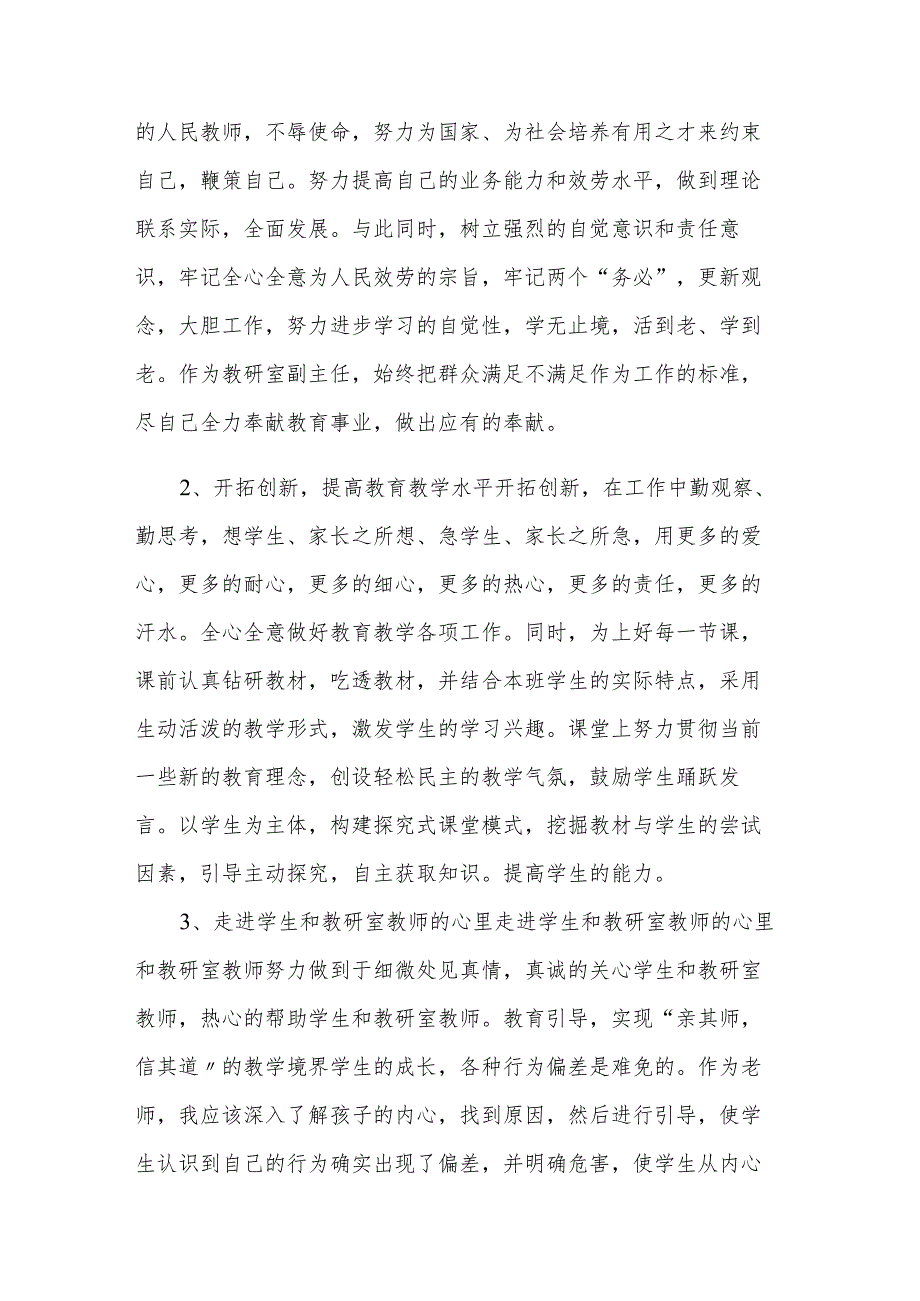 的人民教师，不辱使命，努力为国家、为社会培养有用之才来约束
自己，鞭策自己。努力提高自己的业务能力和效劳水平，做到理论
联系实际，全面发展。与此同时，树立强烈的自觉意识和责任意
识，牢记全心全意为人民效劳的宗旨，牢记两个“务必”，更新观
念，大胆工作，努力进步学习的自觉性，学无止境，活到老、学到
老。作为教研室副主任，始终把群众满足不满足作为工作的标准，
尽自己全力奉献教育事业，做出应有的奉献。
2、开拓创新，提高教育教学水平开拓创新，在工作中勤观察、
勤思考，想学生、家长之所想、急学生、家长之所急，用更多的爱
心，更多的耐心，更多的细心，更多的热心，更多的责任，更多的
汗水。全心全意做好教育教学各项工作。同时，为上好每一节课，
课前认真钻研教材，吃透教材，并结合本班学生的实际特点，采用
生动活泼的教学形式，激发学生的学习兴趣。课堂上努力贯彻当前
一些新的教育理念，创设轻松民主的教学气氛，鼓励学生踊跃发
言。以学生为主体，构建探究式课堂模式，挖掘教材与学生的尝试
因素，引导主动探究，自主获取知识。提高学生的能力。
3、走进学生和教研室教师的心里走进学生和教研室教师的心里
和教研室教师努力做到于细微处见真情，真诚的关心学生和教研室
教师，热心的帮助学生和教研室教师。教育引导，实现“亲其师，
信其道〃的教学境界学生的成长，各种行为偏差是难免的。作为老
师，我应该深入了解孩子的内心，找到原因，然后进行引导，使学
生认识到自己的行为确实出现了偏差，并明确危害，使学生从内心